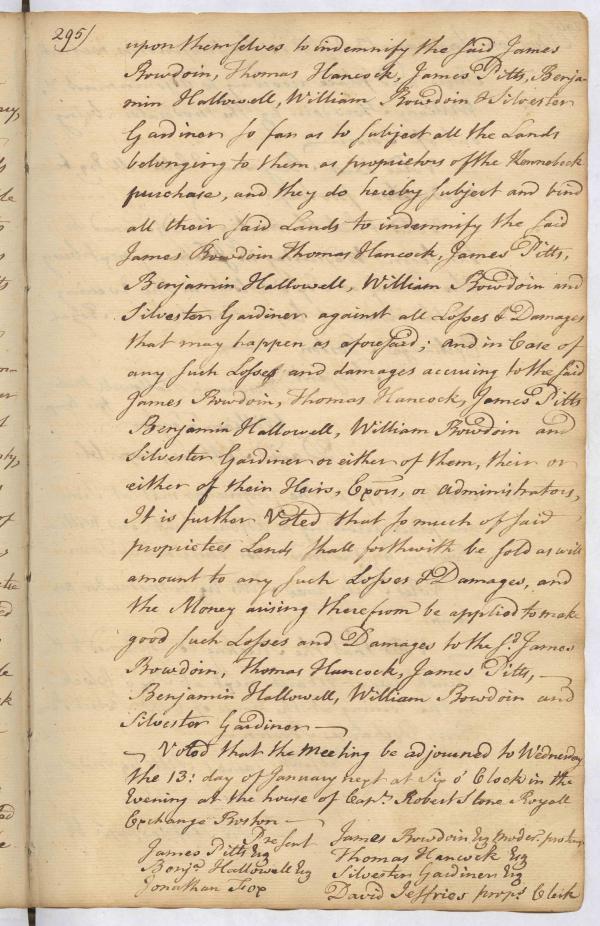 295/
upon themselves to indemnify the said James
Bowdoin, Thomas Hancock, James Pitts, Benja-
min Hallowell, William Bowdoin & Silvester
Gardiner so far as to subject all the Lands
belonging to them as proprietors of the Kennebeck
purchase, and they do hereby subject and bind
all their said Lands to indemnify the said
James Bowdoin Thomas Hancock, James Pitts,
Benjamin Hallowell, William Bowdoin and
Silvester Gardiner against all Losses & Damages
that may happen as aforesaid; and in Case of
any such Losses and damages accruing to the said
James Bowdoin, Thomas Hancock, James Pitts
Benjamin Hallowell, William Bowdoin and
Silvester Gardiner or either of them, their or
either of their Heirs, Exōrs, or Administrators,
It is further Voted that so much of said
proprietees Lands shall forthwith be sold as will
amount to any such Losses & Damages, and
the Money arising therefrom be applied to make
good such Losses and Damages to the sd. James
Bowdoin, Thomas Hancock, James Pitts, —
Benjamin Hallowell, William Bowdoin and
Silvester Gardiner —
— Voted that the Meeting be adjourned to Wednesday
the 13: day of January next at Six o' Clock in the
Evening at the house of Capt. Robert Stone Royall
Exchange Boston —
Present James Bowdoin Esq Moder.
James Pitts Esq Thomas Hancock Esq
Benja. Hallowell Esq Silvester Gardiner Esq
Jonathan Fox David Jeffries proprs Clerk